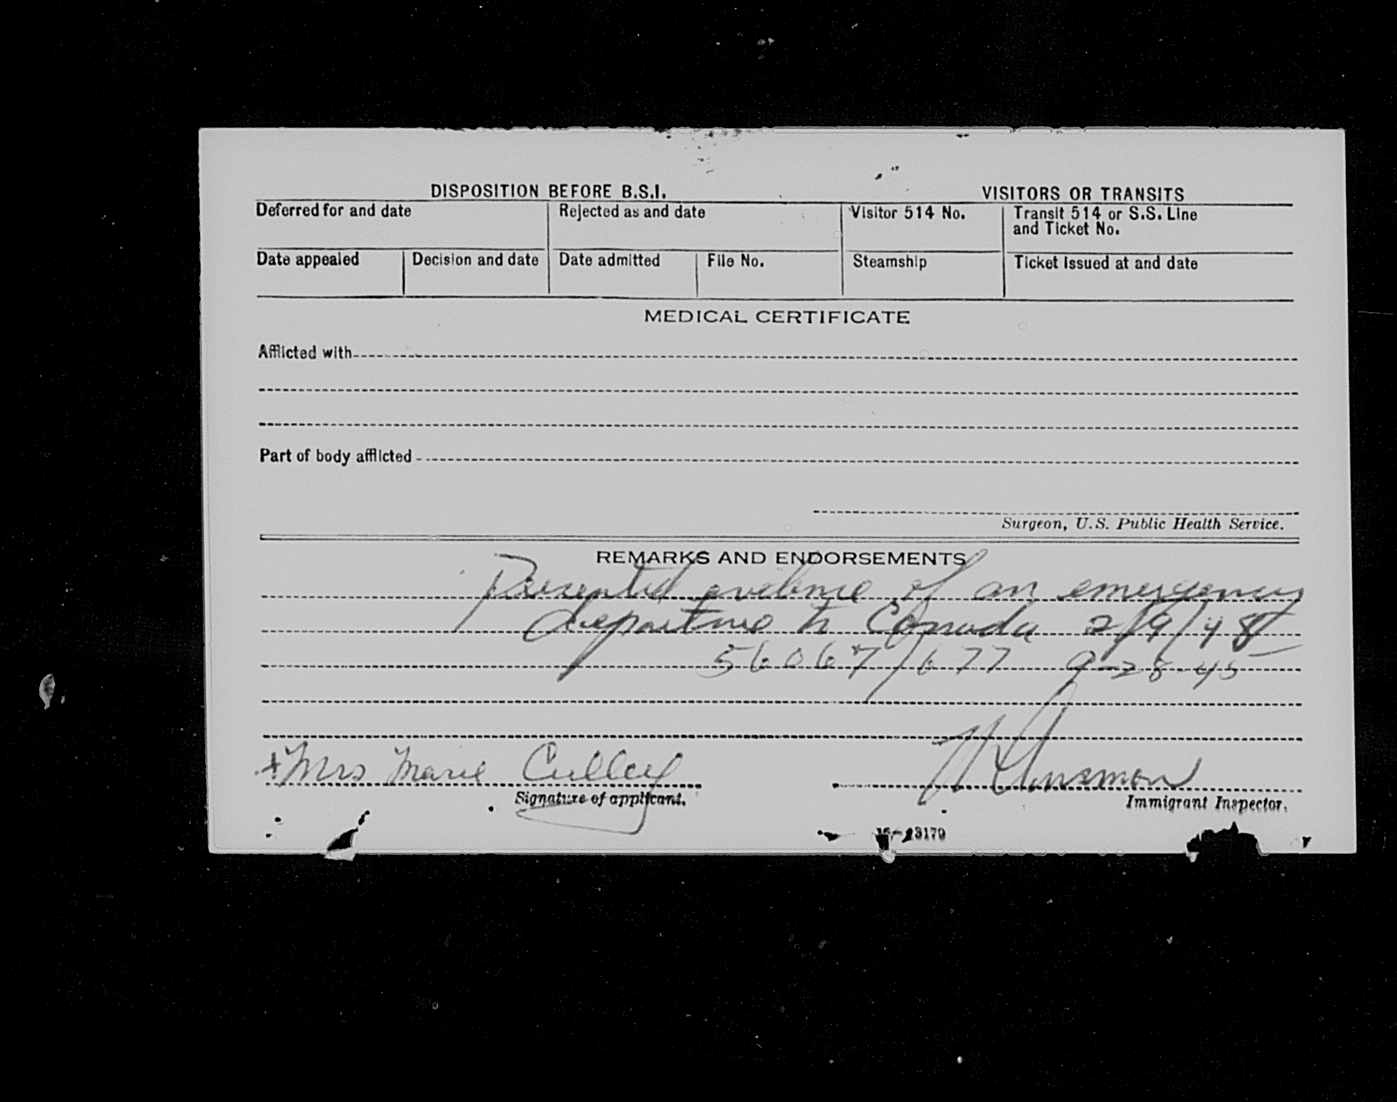 DISPOSITION BEFORE B.S.I. VISITORS OR TRANSITS
Deferred for and date Rejected as and date Visitor 514 No. Transit 514 or S.S. Line
and Ticket No.
Date appealed Decision and date Date admitted File No. Steamship Ticket issued at and date
MEDICAL CERTIFICATE
Afflicted with
Part of body afflicted
Surgeon, U.S. Public Health Service.
REMARKS AND ENDORSEMENTS
Presented evidence of an emergency
departure to Canada 2/9/48
56067/677 9-28-45
Mrs Marie Culley
Signature of applicant.
Immigrant Inspector.
16-13179